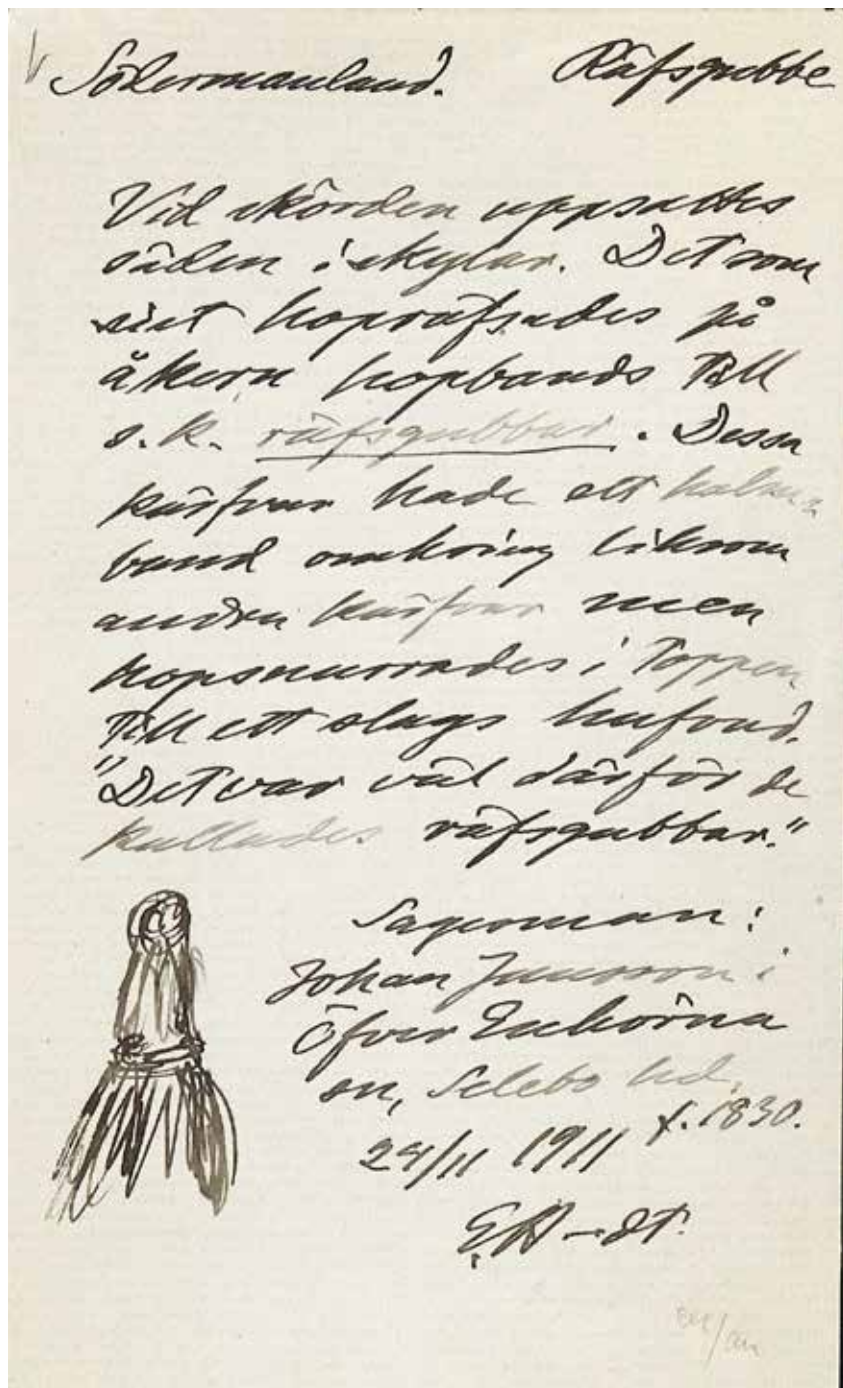 Södermanland. Räfsgubbe
Vid skörden uppsattes
säden i skylar. Det som
sist hopräfsades på
åkern hopbands till
s.k. räfsgubbar. Dessa
kärfvar hade ett halm=
band omkring liksom
andra kärfvar men
hopsnurrades i toppen
till ett slags hufvud.
"Det var väl därför de
kallades räfsgubbar."
Sagesman:
Johan Jansson i
Öfver Enhörna
sn, Selebo hd.
f. 1830.
29/11 1911